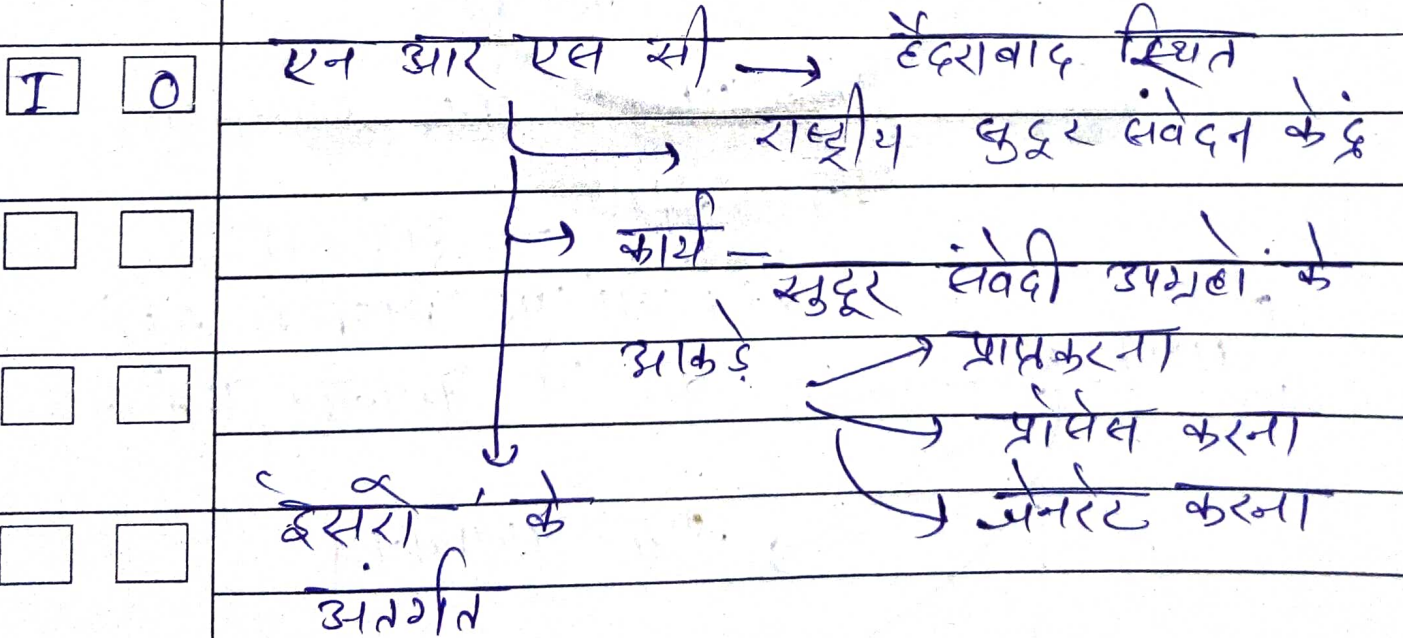 I O एन आर एस सी → हैदराबाद स्थित
→ राष्ट्रीय सुदूर संवेदन केंद्र
→ कार्य –
सुदूर संवेदी उपग्रहों के
आकड़े → प्राप्त करना
→ प्रोसेस करना
→ जेनरेट करना
'इसरो' के
अंतर्गत